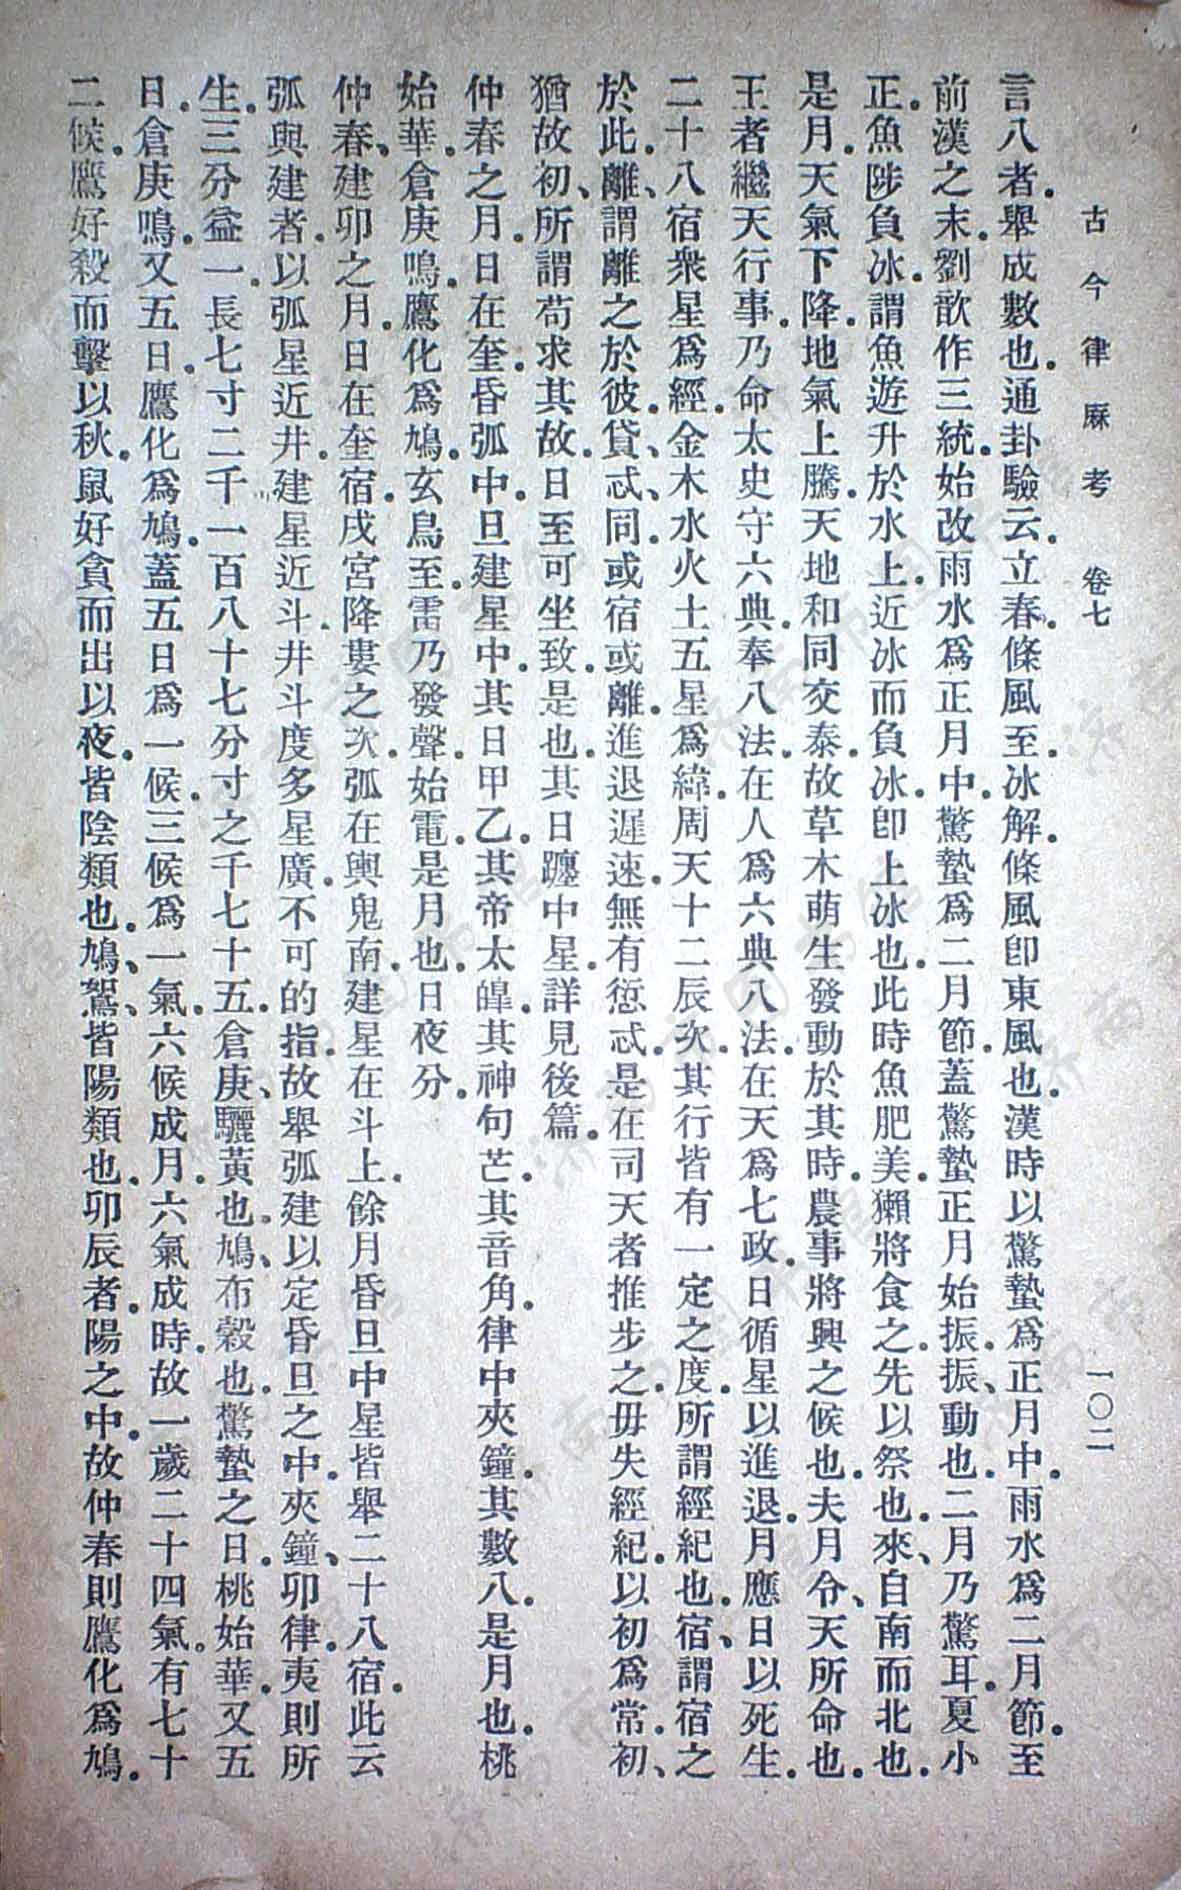 古今律厤考 卷七 一〇二
言八者。舉成數也。通卦驗云。立春。條風至。冰解。條風卽東風也。漢時以驚蟄爲正月中。雨水爲二月節。至
前漢之末。劉歆作三統。始改雨水爲正月中。驚蟄爲二月節。蓋驚蟄正月始振。振、動也。二月乃驚耳。夏小
正。魚陟負冰。謂魚遊升於水上。近冰而負冰。卽上冰也。此時魚肥美。獺將食之。先以祭也。來、自南而北也。
是月。天氣下降。地氣上騰。天地和同交泰。故草木萌生發動於其時。農事將興之候也。夫月令、天所命也。
王者繼天行事。乃命太史守六典。奉八法。在人爲六典八法。在天爲七政。日循星以進退。月應日以死生。
二十八宿衆星爲經。金木水火土五星爲緯。周天十二辰次。其行皆有一定之度。所謂經紀也。宿、謂宿之
於此。離、謂離之於彼。貸、忒同。或宿或離。進退遲速。無有愆忒。是在司天者推步之。毋失經紀。以初爲常。初、
猶故初、所謂苟求其故。日至可坐致。是也。其日躔中星。詳見後篇。
仲春之月。日在奎。昏弧中。旦建星中。其日甲乙。其帝太皥。其神句芒。其音角。律中夾鐘。其數八。是月也。桃
始華。倉庚鳴。鷹化爲鳩。玄鳥至。雷乃發聲。始電。是月也。日夜分。
仲春、建卯之月。日在奎宿。戌宮降婁之次。弧在輿鬼南。建星在斗上。餘月昏旦中星。皆舉二十八宿。此云
弧與建者。以弧星近井。建星近斗。井斗度多星廣。不可的指。故舉弧建以定昏旦之中。夾鐘、卯律。夷則所
生。三分益一。長七寸二千一百八十七分寸之千七十五。倉庚、驪黃也。鳩、布穀也。驚蟄之日。桃始華。又五
日。倉庚鳴。又五日。鷹化爲鳩。蓋五日爲一候。三候爲一氣。六候成月。六氣成時。故一歲二十四氣。有七十
二候。鷹好殺而擊以秋。鼠好貪而出以夜。皆陰類也。鳩、鴽、皆陽類也。卯辰者。陽之中。故仲春則鷹化爲鳩。